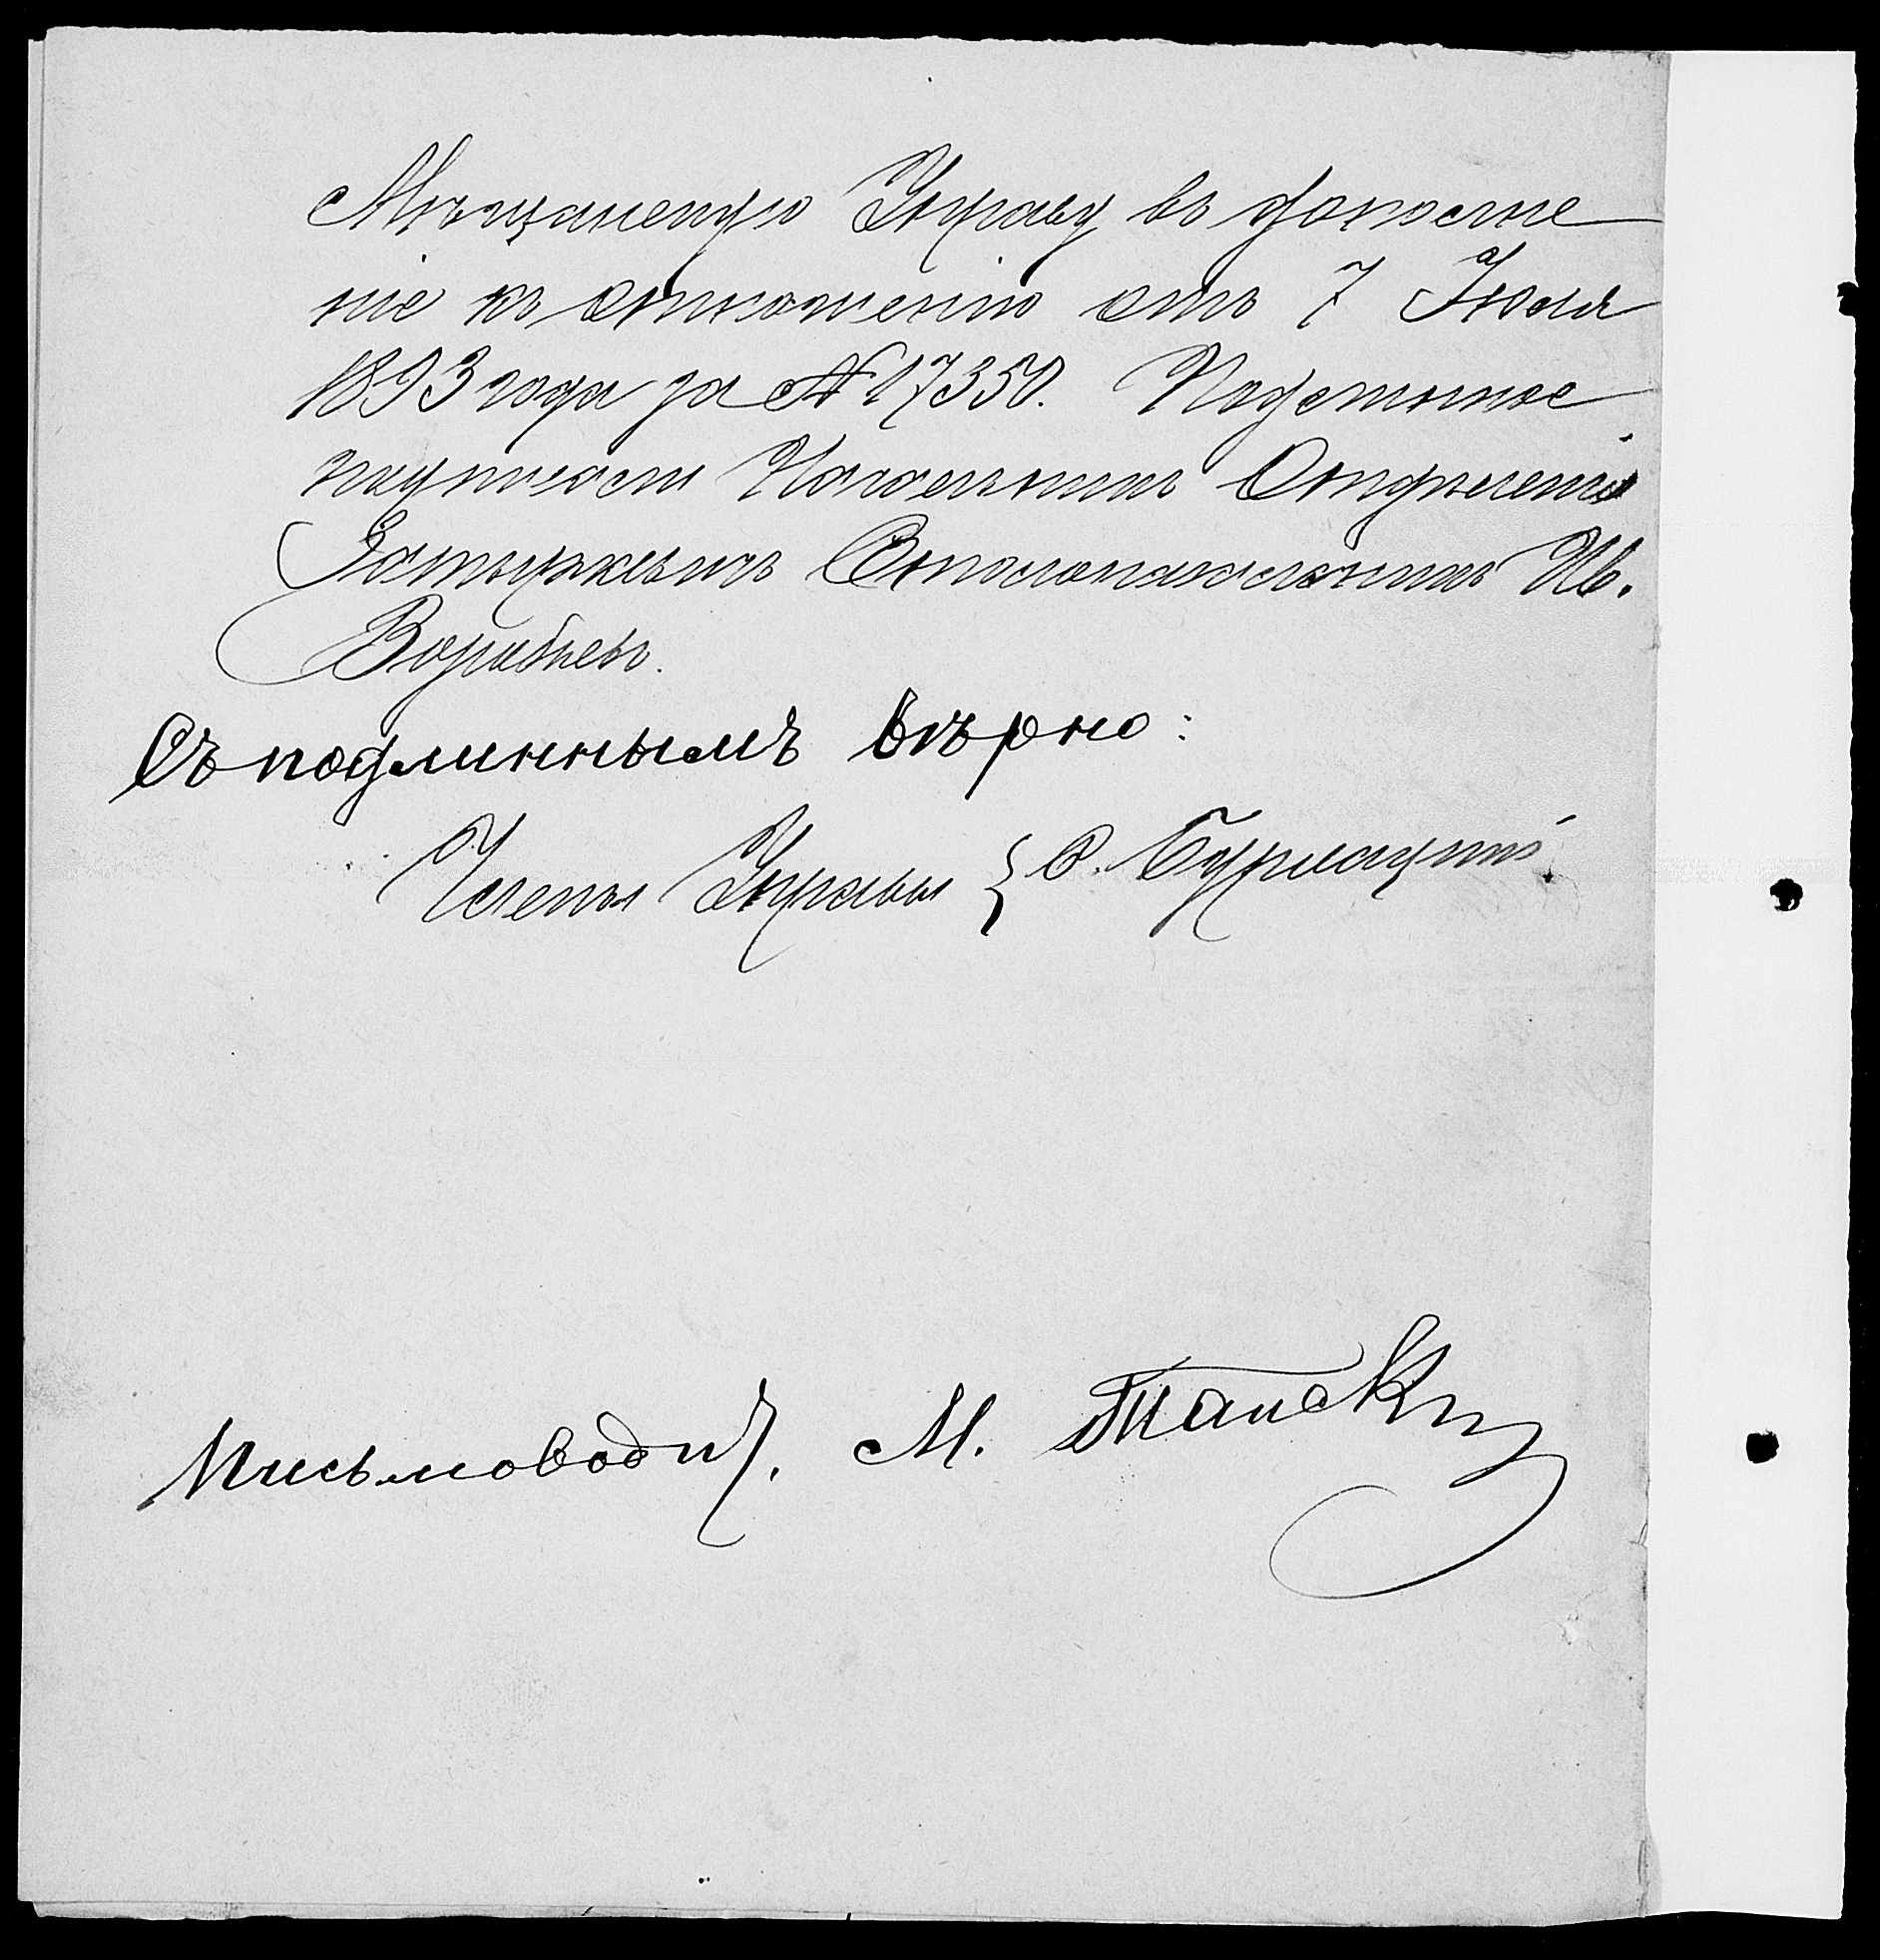 Мѣщанскую Управу въ дополне
ніе къ отношенію отъ 7 Іюля
1893 года за № 17350. Подлинное
подписали Начальникъ Отдѣленія
Столоначальникъ Ив.
Воробьевъ.
Съ подлиннымъ вѣрно:
Члены Управы { С.
Письмоводит. М. Танскій